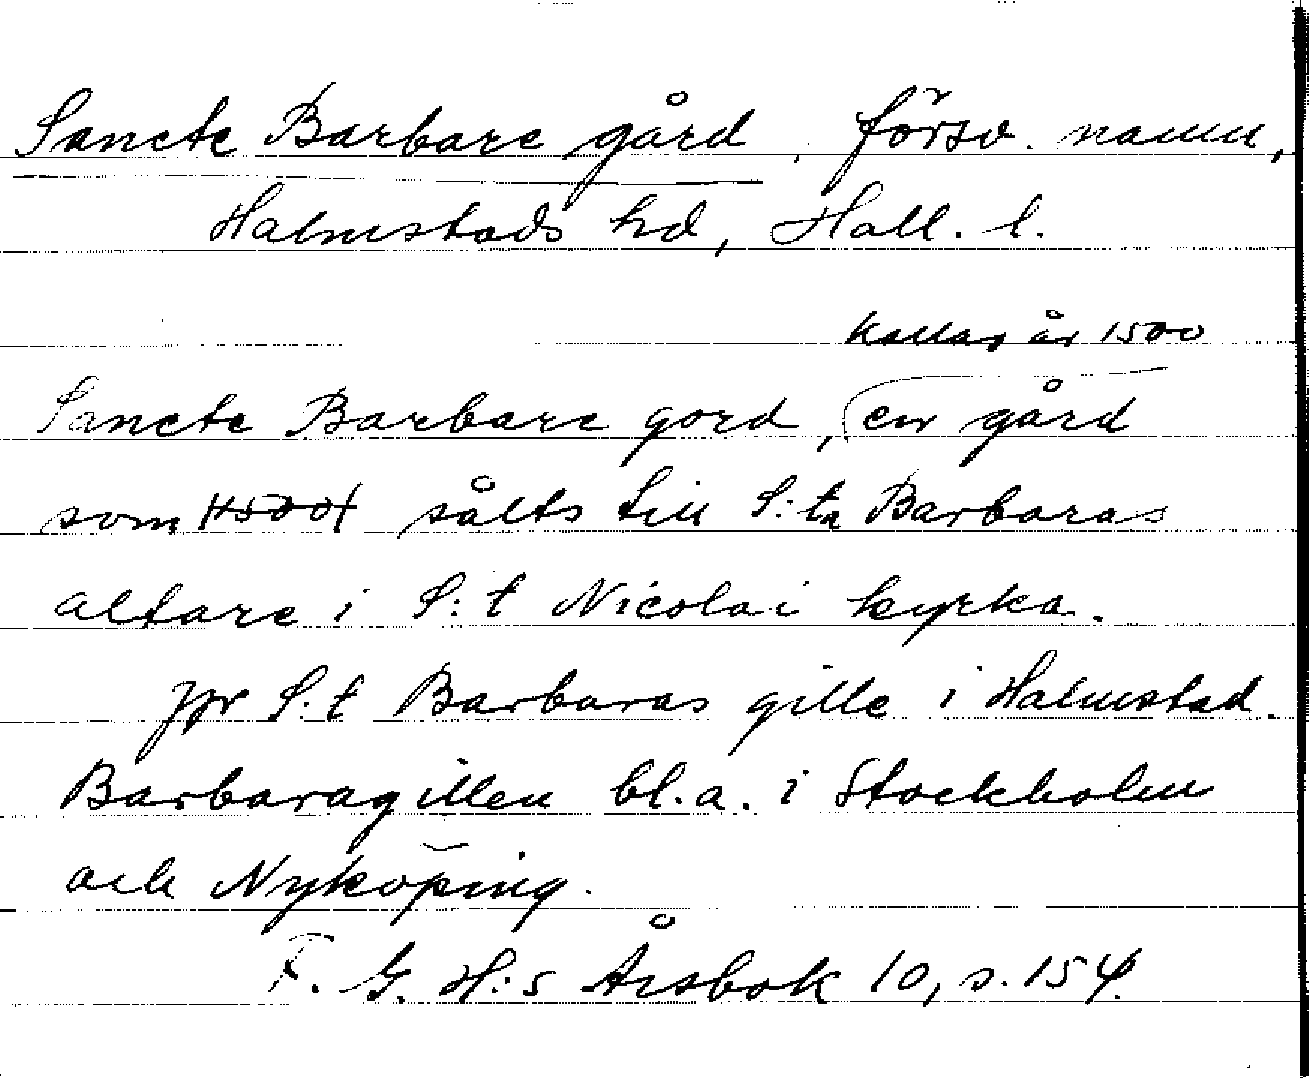 Sancte Barbare gård, försv. namn,
Halmstads hd, Hall. l.
kallas år 1500
Sancte Barbare gord, en gård
som 1500 sålts till S:ta Barbaras
altare i S:t Nicolai kyrka.
Jfr S:t Barbaras gille i Halmstad.
Barbaragillen bl.a. i Stockholm
och Nyköping.
F. G. H:s Årsbok 10, s. 154.